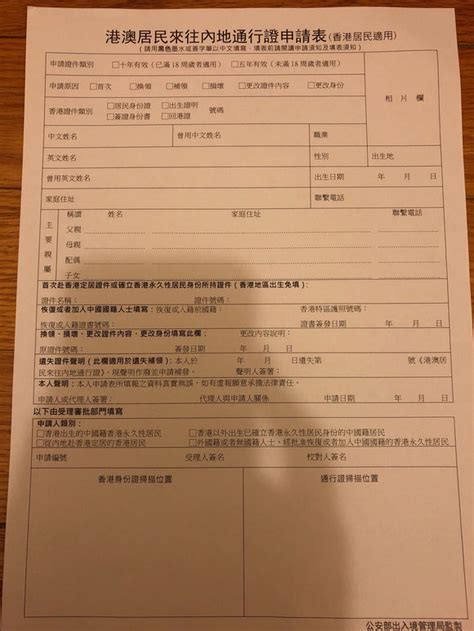 港澳居民來往內地通行證申請表(香港居民適用)
(請用黑色墨水或簽字筆以中文填寫，填表前請閱讀申請須知及填表須知)
申請證件類別 □十年有效(已滿18周歲者適用) □五年有效(未滿18周歲者適用)
申請原因 □首次 □換領 □補領 □損壞 □更改證件內容 □更改身份
相片欄
香港證件類別 □居民身份證 □出生證明 號碼
□簽證身份書 □回港證
中文姓名 曾用中文姓名 職業
英文姓名 性別 出生地
曾用英文姓名 出生日期 年 月 日
家庭住址 聯繫電話
主要親屬 稱謂 姓名 家庭住址 聯繫電話
父親
母親
配偶
子女
首次赴香港定居證件或確立香港永久性居民身份所持證件(香港地區出生免填)：
證件名稱： 證件號碼：
恢復或者加入中國國籍人士填寫：恢復或入籍前國籍： 香港特區護照號碼：
恢復或入籍證書號碼： 證書簽發日期： 年 月 日
換領、損壞、更改內容、更改身份填寫此欄： 更改內容說明：
原證件號碼： 簽發日期 年 月 日
遺失證件聲明(此欄適用於遺失補領)：本人於 年 月 日遺失第 號《港澳居
民來往內地通行證》，現聲明作廢並申請補發。 聲明人簽署：
本人聲明：本申請表所填報之資料真實無誤，如有虛報願意承擔法律責任。
申請人或代理人簽名： 代理人與申請人關係 申請日期： 年 月 日
以下由受理審批部門填寫
申請人類別：
□香港出生的中國籍香港永久性居民 □香港以外出生已確立香港永久性居民身份的中國籍居民
□從內地赴香港定居的香港居民 □外國籍或者無國籍人士，經批准恢復或者加入中國國籍的香港居民
申請編號 受理人簽名 校對人簽名
香港身份證掃描位置 通行證掃描位置
公安部出入境管理局監製